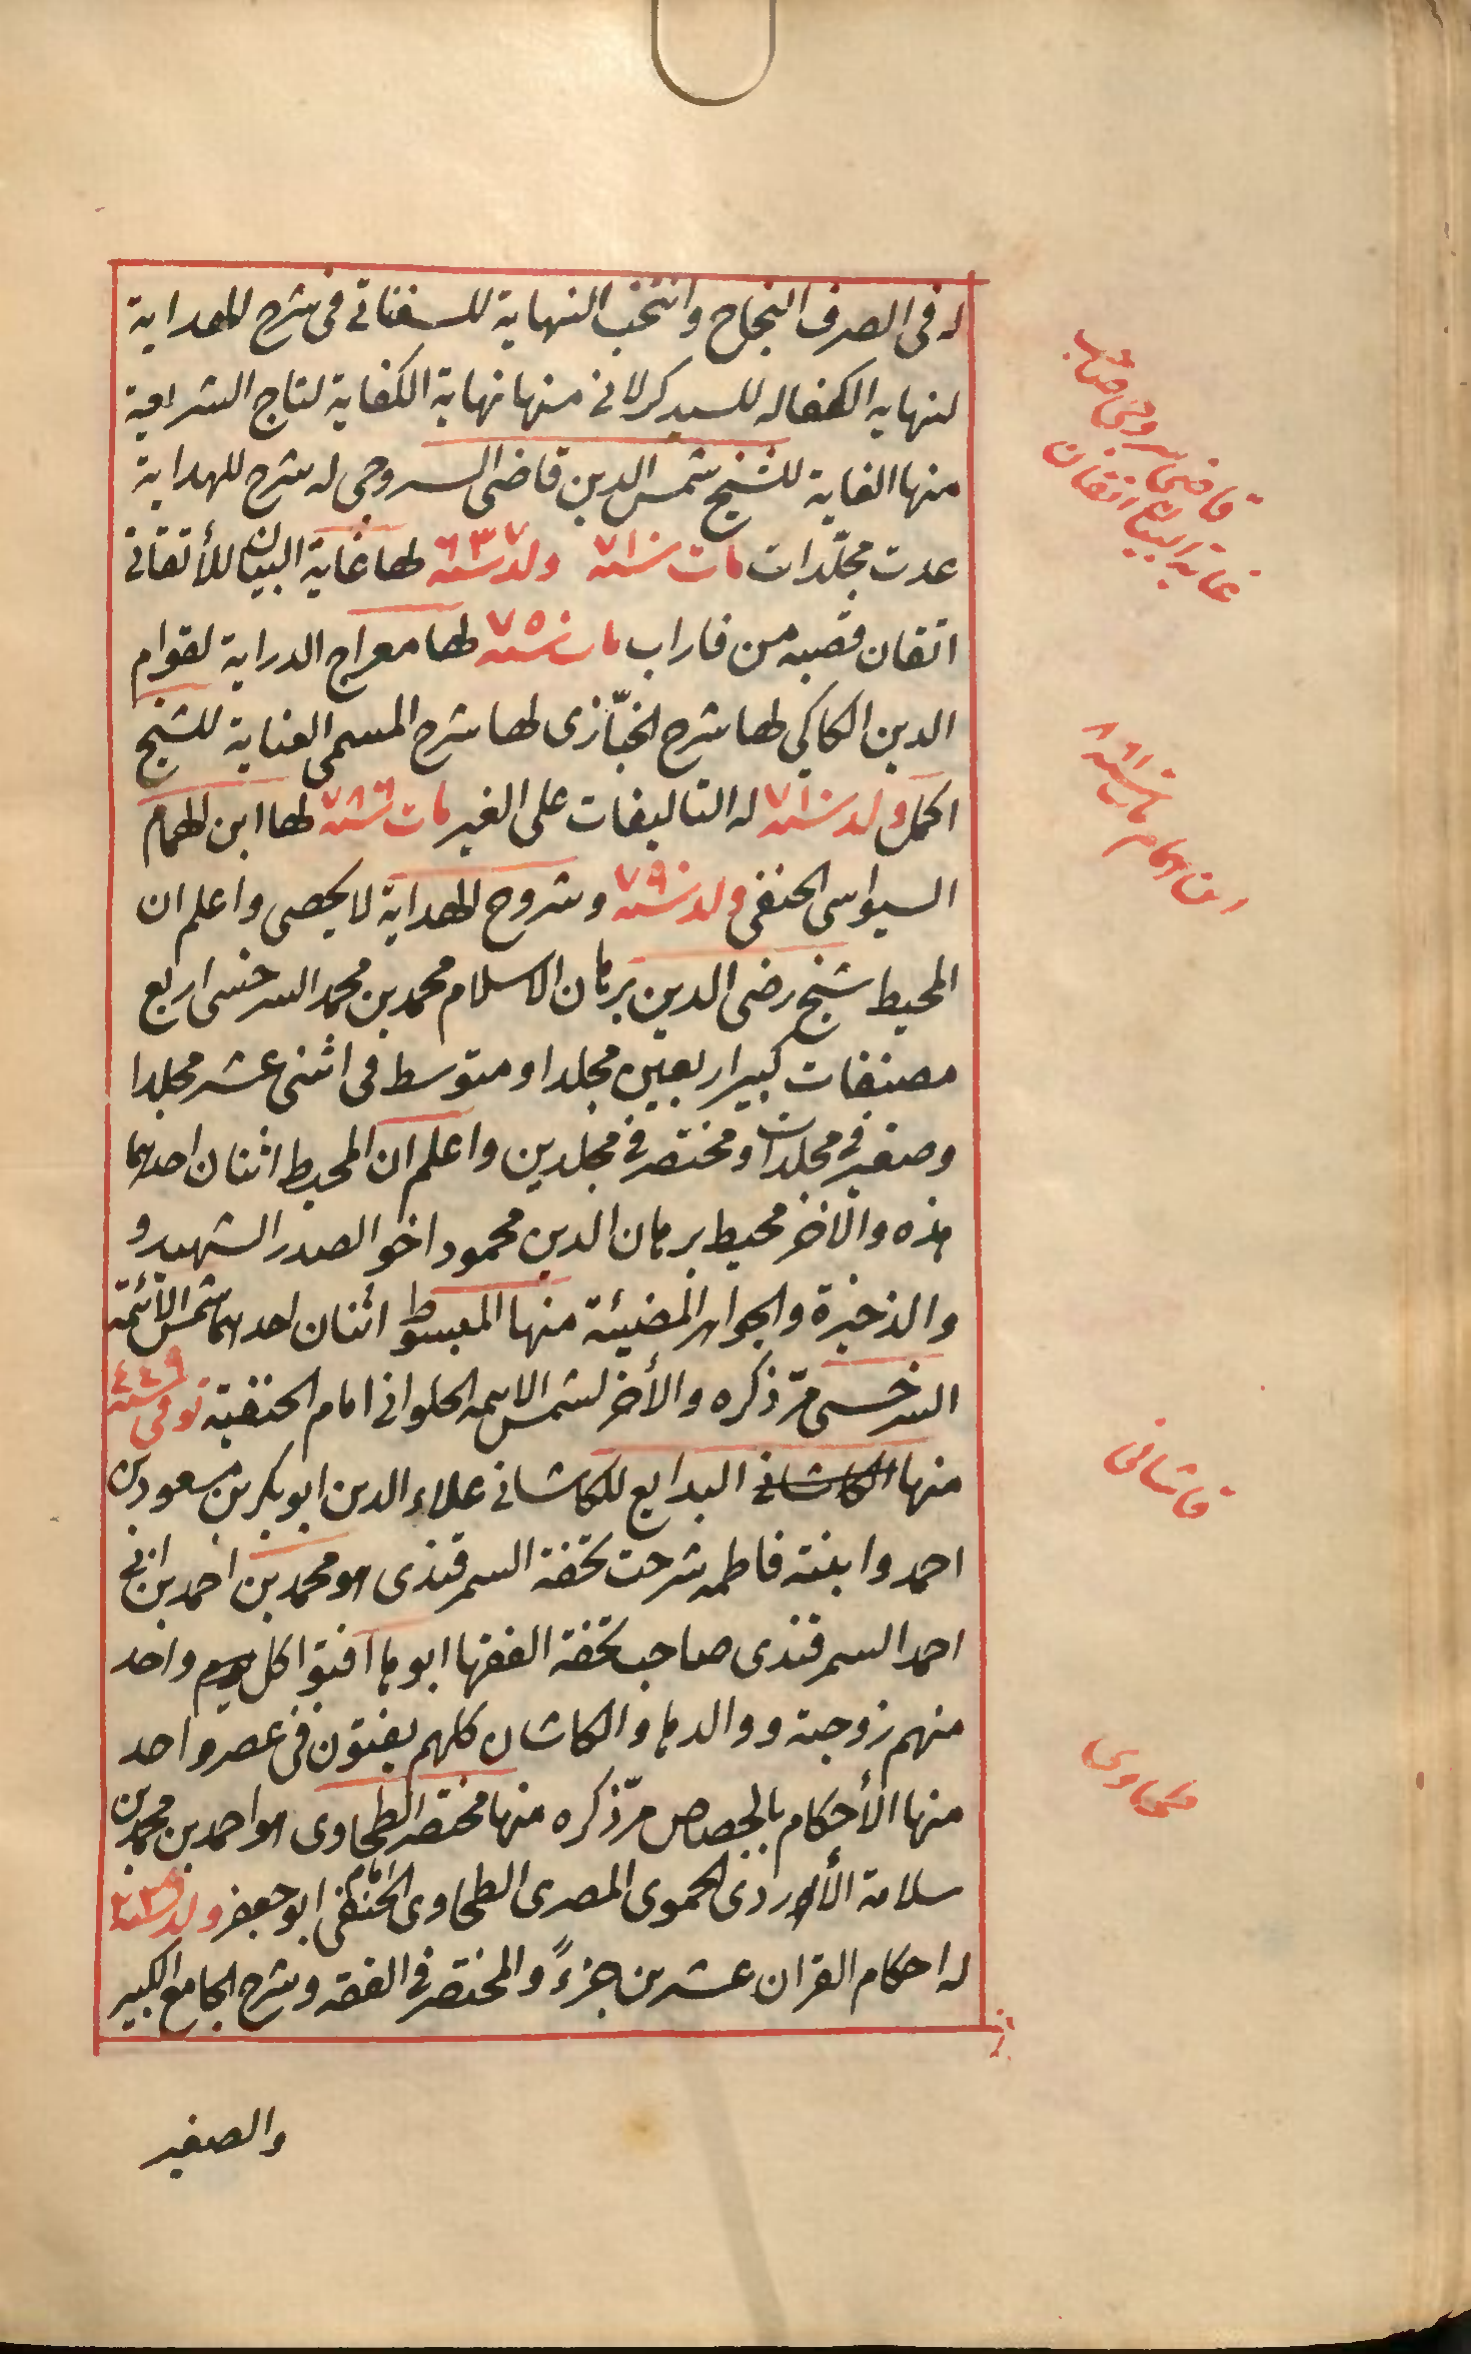 له فى الصرف النجاح وانتخب النهاية للسغناقى فى شرح الهداية
لنهايه الكفاله للسيد كرلانى منها نهاية الكفاية لتاج الشريعة
منها الغاية للشيخ شمس الدين قاضى السروجى له شرح للهداية
عدت مجلّدات مات سنه ٧١٠ ولد سنه ٦٣٧ لها غاية البيان للأتقانى
اتقان قصبه من فاراب مات سنه ٧٥٠ لها معراج الدراية لقوام
الدين الكاكى لها شرح الخبّازى لها شرح المسمى العناية للشيخ
اكمل ولد سنه ٧١٠ له التاليفات على الغير مات سنه ٧٨٦ لها ابن الهمام
السيواسى الحنفى ولد سنه ٧٩٠ وشروح الهداية لا يحصى واعلم ان
المحيط شيخ رضى الدين برهان الاسلام محمد بن محمد السرخسى اربع
مصنفات كبير اربعين مجلدا ومتوسط فى اثنى عشر مجلدا
وصغير فى مجلدات ومختصر فى مجلدين واعلم ان المحيط اثنان احدهما
هذه والآخر محيط برهان الدين محمود اخو الصدر الشهيد و
والذخيرة والجواهر المضيئة منها المبسوط اثنان احدهما شمس الائمة
السرخسى مرّ ذكره والأخر لشمس الايمه الحلوانى امام الحنفية توفى سنه ٤٤٩
منها الكاشانى البدايع للكاشانى علاء الدين ابو بكر بن مسعود بن
احمد وابنته فاطمه شرحت تحفة السمرقندى هو محمد بن احمد بن ابى
احمد السمرقندى صاحب تحفة الفقها ابوها افتوا كل يوم واحد
منهم زوجته ووالدها والكاشان كلهم يفتون فى عصر واحد
منها الأحكام بالجصاص مرّ ذكره منها مختصر الطحاوى هو احمد بن محمد بن
سلامة الأزدى الحموى المصرى الطحاوى الحنفى امام ابو جعفر ولد سنه ٢٣٩
له احكام القران عشرين جزءً والمختصر فى الفقه وشرح الجامع الكبير
والصغير
قاضى سروجى صاحب
غاية البيان اتقان
ابن الهمام مات سنه ٨٦١
قاشانى
طحاوى